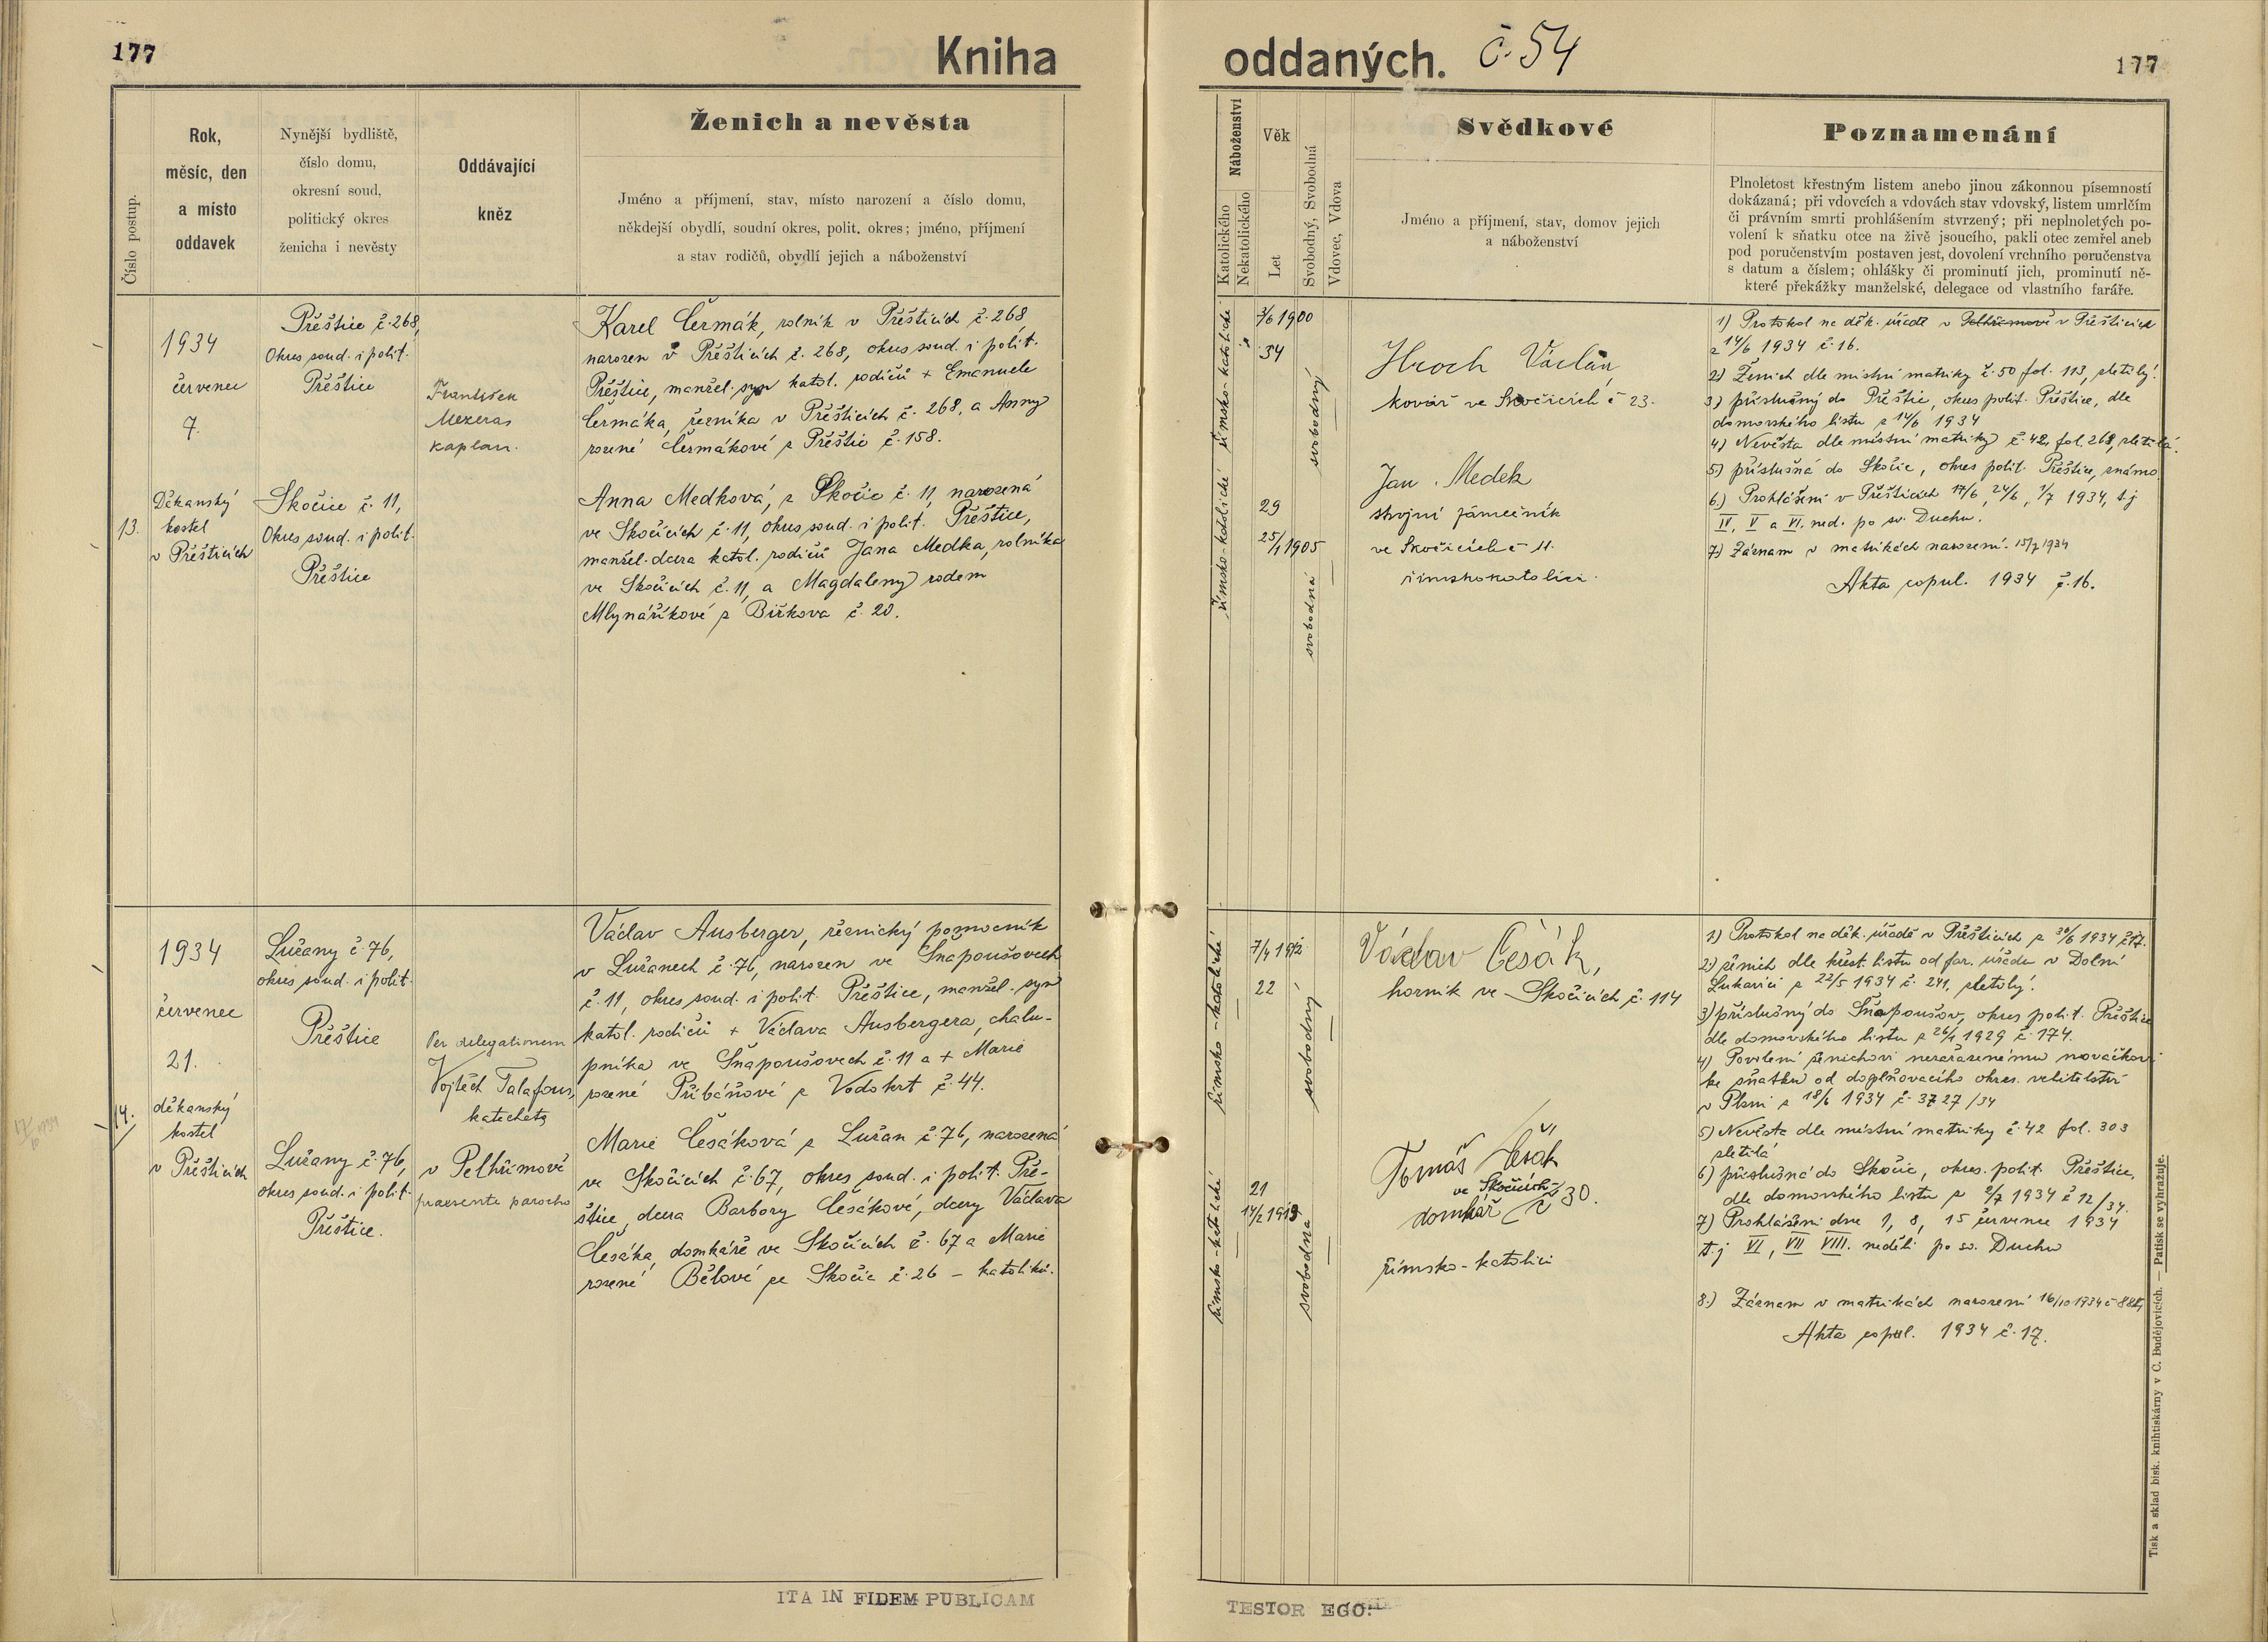 177
Kniha
oddaných. č. 54
177
Číslo postup.
Rok,
měsíc, den
a místo
oddavek
Nynější bydliště,
číslo domu,
okresní soud,
politický okres
ženicha i nevěsty
Oddávající
kněz
Ženich a nevěsta
Jméno a příjmení, stav, místo narození a číslo domu,
někdejší obydlí, soudní okres, polit. okres; jméno, příjmení
a stav rodičů, obydlí jejich a náboženství
Náboženství
Katolického
Nekatolického
Věk
Let
Svobodný, Svobodná
Vdovec, Vdova
Svědkové
Jméno a příjmení, stav, domov jejich
a náboženství
Poznamenání
Plnoletost křestným listem anebo jinou zákonnou písemností
dokázaná; při vdovcích a vdovách stav vdovský, listem umrlčím
či právním smrti prohlášením stvrzený; při neplnoletých po-
volení k sňatku otce na živě jsoucího, pakli otec zemřel aneb
pod poručenstvím postaven jest, dovolení vrchního poručenstva
s datum a číslem; ohlášky či prominutí jich, prominutí ně-
které překážky manželské, delegace od vlastního faráře.
13.
1934
červenec
7.
Děkanský
kostel
v Přešticích
Přeštice č. 268,
Okres soud. i polit.
Přeštice
Skočice č. 11,
Okres soud. i polit.
Přeštice
František
Mezeras
kaplan.
Karel Čermák, rolník v Přešticích č. 268
narozen v Přešticích č. 268, okres soud. i polit.
Přeštice, manžel. syn katol. rodičů + Emanuele
Čermáka, řezníka v Přešticích č. 268, a Anny
rozené Čermákové z Přeštic č. 158.
Anna Medková, z Skočic č. 11, narozená
ve Skočicích č. 11, okres soud. i polit. Přeštice,
manžel. dcera katol. rodičů Jana Medka, rolníka
ve Skočicích č. 11, a Magdaleny rodem
Mlynaříkové z Biřkova č. 20.
římsko-katolické
římsko-katolické
3/6 1900
34
29
25/1 1905
svobodný
svobodná
Hroch Václav,
kovář ve Skočicích č 23.
Jan Medek
strojní zámečník
ve Skočicích č 11.
římskokatolíci.
1) Protokol na děk. úřadě v Pelhřimově v Přešticích
z 14/6 1934 č. 16.
2) Ženich dle místní matriky č. 50 fol. 113, zletilý.
3) příslušný do Přeštic, okres polit. Přeštice, dle
domovského listu z 14/6 1934
4) Nevěsta dle místní matriky č. 42, fol. 268, zletilá.
5) příslušná do Skočic, okres polit. Přeštice, známo
6) Prohlášení v Přešticích 17/6, 24/6, 1/7 1934, t.j
IV, V a VI. ned. po sv. Duchu.
7) Záznam v matrikách narození. 15/7 1934
Akta copul. 1934 č. 16.
14.
1934
červenec
21.
děkanský
kostel
v Přešticích
Lužany č. 76,
okres soud. i polit.
Přeštice
Lužany č. 76,
okres soud. i polit.
Přeštice.
Per delegationem
Vojtěch Talafous,
katecheta
v Pelhřimově
praesente parocho
Václav Ausberger, řeznický pomocník
v Lužanech č. 76, narozen ve Snapoušovech
č. 11, okres soud. i polit. Přeštice, manžel. syn
katol. rodičů + Václava Ausbergera, chalu-
pníka ve Snapoušovech č. 11 a + Marie
rozené Přibáňové z Vodokrt č. 44.
Marie Cesáková z Lužan č. 76, narozená
ve Skočicích č. 67, okres soud. i polit. Pře-
štice, dcera Barbory Cesákové, dcery Václava
Cesáka, domkáře ve Skočicích č. 67 a Marie
rozené Bělové ze Skočic č. 26 – katolíků.
římsko-katolické
římsko-katolické
7/4 1912
22
21
14/2 1913
svobodný
svobodná
Václav Cesák,
horník ve Skočicích č. 114
Tomáš Cesák
ve Skočicích
domkář č 30.
římsko-katolíci
1) Protokol na děk. úřadě v Přešticích z 30/6 1934 č 17.
2) ženich dle křest. listu od far. úřadu v Dolní
Lukavici z 22/5 1934 č. 241, zletilý.
3) příslušný do Snapoušov, okres polit. Přeštice
dle domovského listu z 26/1 1929 č. 174.
4) Povolení ženichovi nezařazenému nováčkovi
ke sňatku od doplňovacího okres. velitelství
v Plzni z 18/6 1934 č. 3727/34
5) Nevěsta dle místní matriky č. 42 fol. 303
zletilá
6) příslušná do Skočic, okres. polit. Přeštice,
dle domovského listu z 2/7 1934 č 12/34.
7) Prohlášení dne 1, 8, 15 července 1934
t.j VI, VII VIII. neděli po sv. Duchu
8.) Záznam v matrikách narození 16/10 1934
Akta copul. 1934 č. 17.
ITA IN FIDEM PUBLICAM
TESTOR EGO:
Tisk a sklad bisk. knihtiskárny v Č. Budějovicích. — Patisk se vyhražuje.